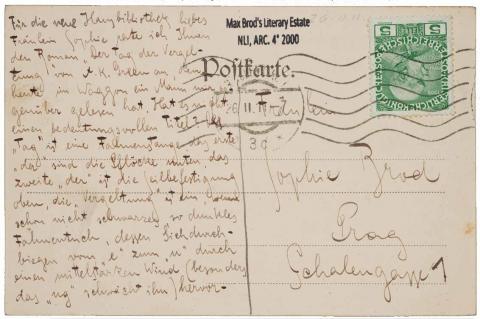 Für die neue Hausbibliothek liebes
Fräulein Sophie rate ich Ihnen
den Roman „Der Tag der Vergel-
tung" von A. K. Green an den
heute im Waggon ein Mann mir ge-
genüber gelesen hat. Hat es nicht
einen bedeutungsvollen Titel? Der
„Tag" ist eine Fahnenstange, das erste
„der" sind die Pflöcke unten das
zweite „der" ist die Seilbefestigung
oben, die „Vergeltung" ist ein, wenn
schon nicht schwarzes so dunkles
Fahnentuch, dessen Sichdurch-
biegen vom „e" zum „u" durch
einen mittelstarken Wind (besonders
das „ng" schwächt ihn) hervor-
Max Brod's Literary Estate
NLI, ARC. 4° 2000
Postkarte.
26 II
3c
5 5
Fräulein
Sophie Brod
Prag
Schalengasse 1